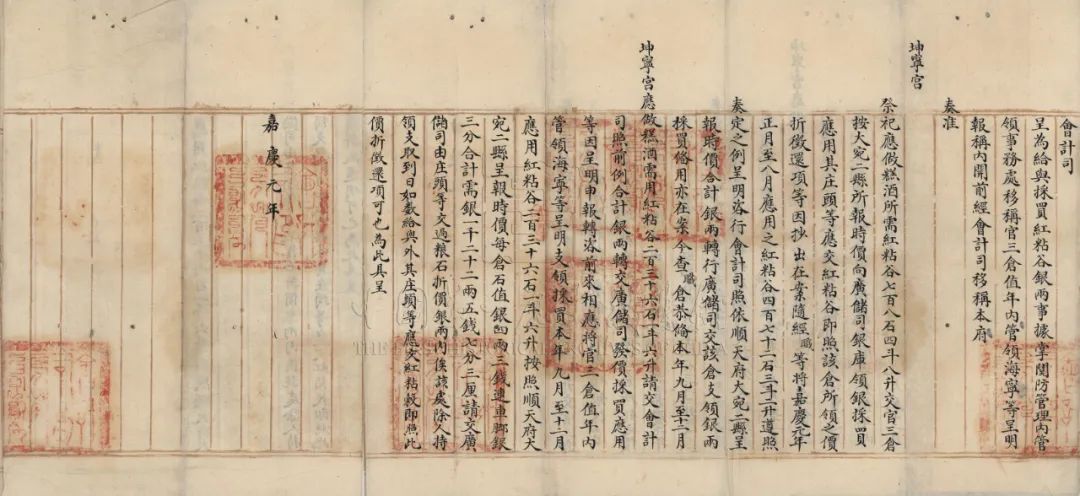 會計司
呈為給與採買紅粘谷銀兩事據掌關防管理內管
領事務處移稱官三倉值年內管領海寧等呈明
報稱內開前經會計司移稱本府
奏准
坤寧宮
祭祀應做糕酒所需紅粘谷七百八石四斗八升交官三倉
按大宛二縣所報時價向廣儲司銀庫領銀採買
應用其庄頭等應交紅粘谷即照該倉所領之價
折徵還項等因抄出在案隨經職等將嘉慶元年
正月至八月應用之紅粘谷四百七十二石三斗二升遵照
奏定之例呈明咨行會計司照依順天府大宛二縣呈
報時價合計銀兩轉行廣儲司交該倉支領銀兩
採買備用亦在案今查職倉恭備本年九月至十二月
坤寧宮應做糕酒需用紅粘谷二百三十六石一斗六升請交會計
司照前例合計銀兩轉交廣儲司發價採買應用
等因呈明申報轉咨前來相應將官三倉值年內
管領海寧等呈明支領採買本年九月至十二月
應用紅粘谷二百三十六石一斗六升按照順天府大
宛二縣呈報時價每倉石值銀四兩三錢連車脚銀
三分合計需銀一千二十二兩五錢七分三厘請交廣
儲司由庄頭等交過粮石折價銀兩內俟該處除人持
領支取到日如數給與外其庄頭等應交紅粘穀即照此
價折徵還項可也為此具呈
嘉慶元年